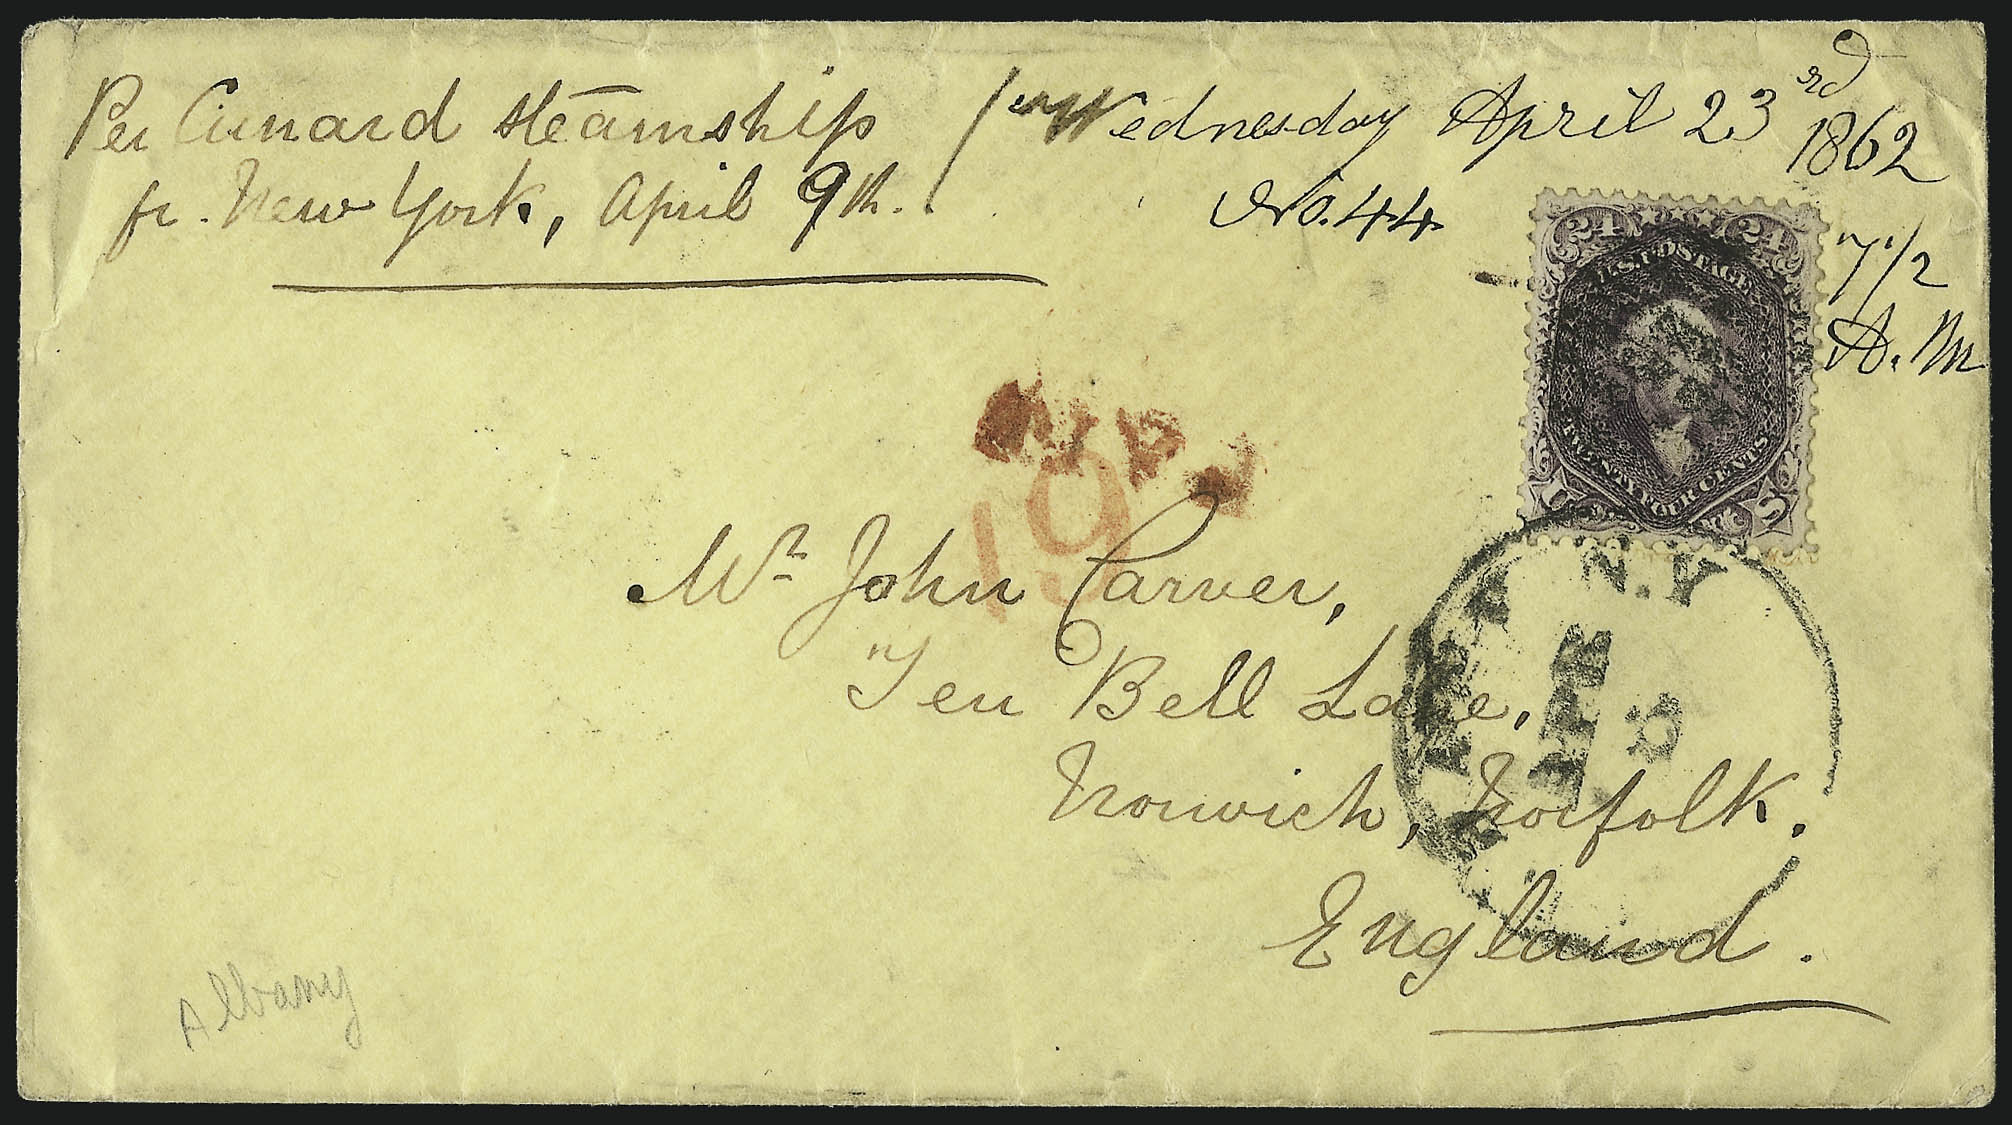 Per Cunard steamship
fr. New York, April 9th.
Wednesday April 23rd
1862
No. 44
7 1/2
A. M
24 24
U.S. POSTAGE
TWENTY FOUR CENTS
U S
19
Mr John Carver,
Ten Bell Lane,
Norwich, Norfolk.
England.
N.Y
APR
Albany